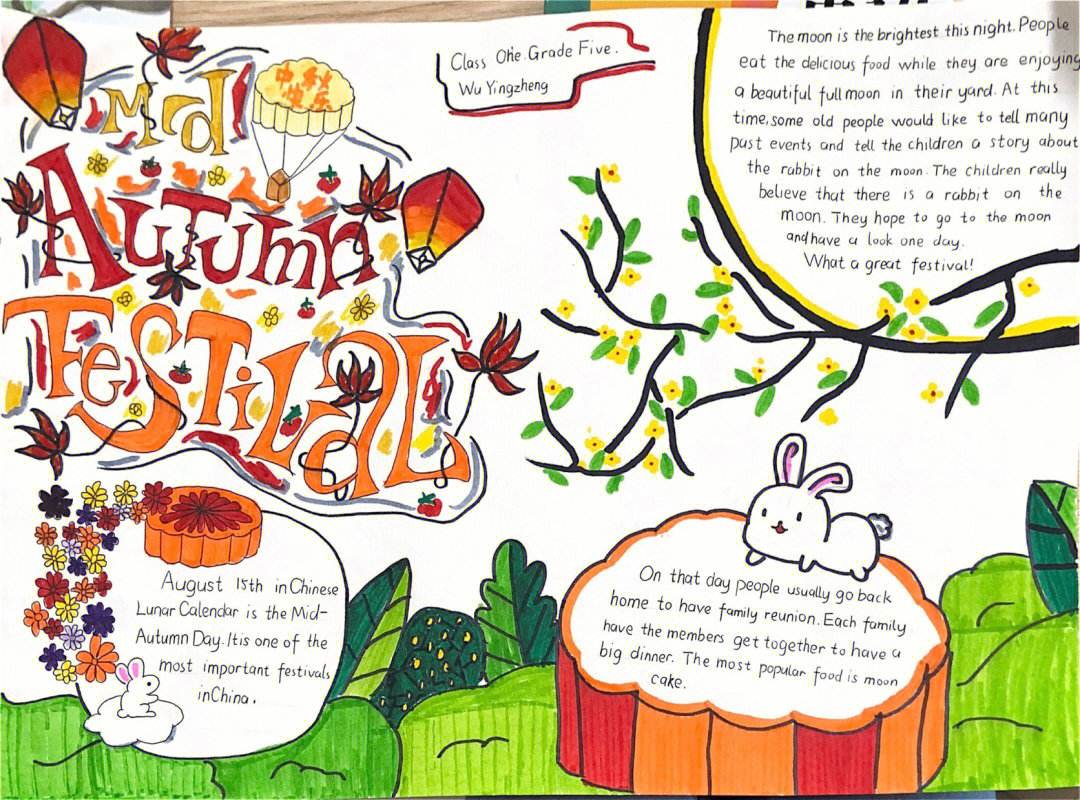 Mid
Autumn
Festival
中秋
快乐
Class One Grade Five.
Wu Yingzheng
The moon is the brightest this night. People
eat the delicious food while they are enjoying
a beautiful full moon in their yard. At this
time, some old people would like to tell many
past events and tell the children a story about
the rabbit on the moon. The children really
believe that there is a rabbit on the
moon. They hope to go to the moon
and have a look one day.
What a great festival!
August 15th in Chinese
Lunar Calendar is the Mid-
Autumn Day. It is one of the
most important festivals
in China.
On that day people usually go back
home to have family reunion. Each family
have the members get together to have a
big dinner. The most popular food is moon
cake.